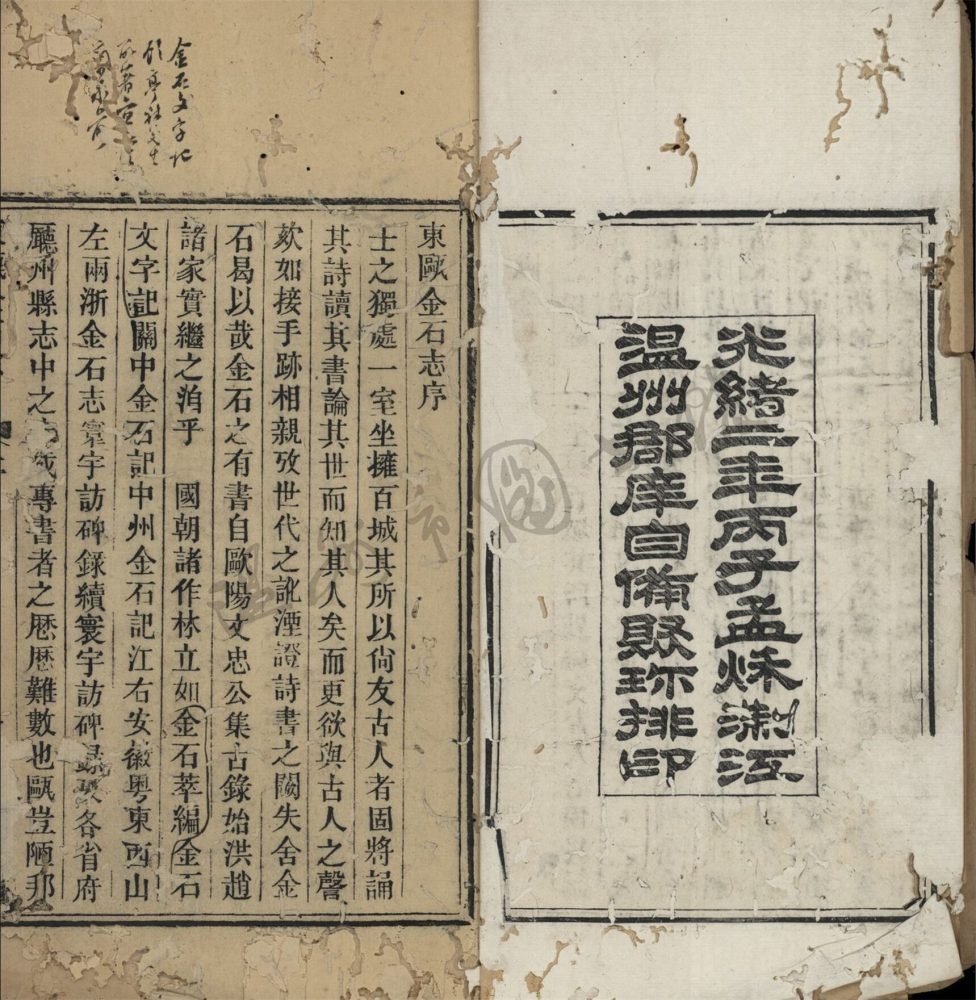 光緒二年丙子孟秋浙江
温州郡庠自備聚珍排印
金石文字記
東甌金石志序
士之獨處一室坐擁百城其所以尙友古人者固將誦
其詩讀其書論其世而知其人矣而更欲與古人之謦
欬如接手跡相親攷世代之訛湮證詩書之闕失舍金
石曷以哉金石之有書自歐陽文忠公集古錄始洪趙
諸家實繼之洎乎　國朝諸作林立如金石萃編金石
文字記關中金石記中州金石記江右安徽粵東西山
左兩浙金石志寰宇訪碑錄續寰宇訪碑錄及各省府
廳州縣志中之專書者之歴歴難數也甌豈陋邦